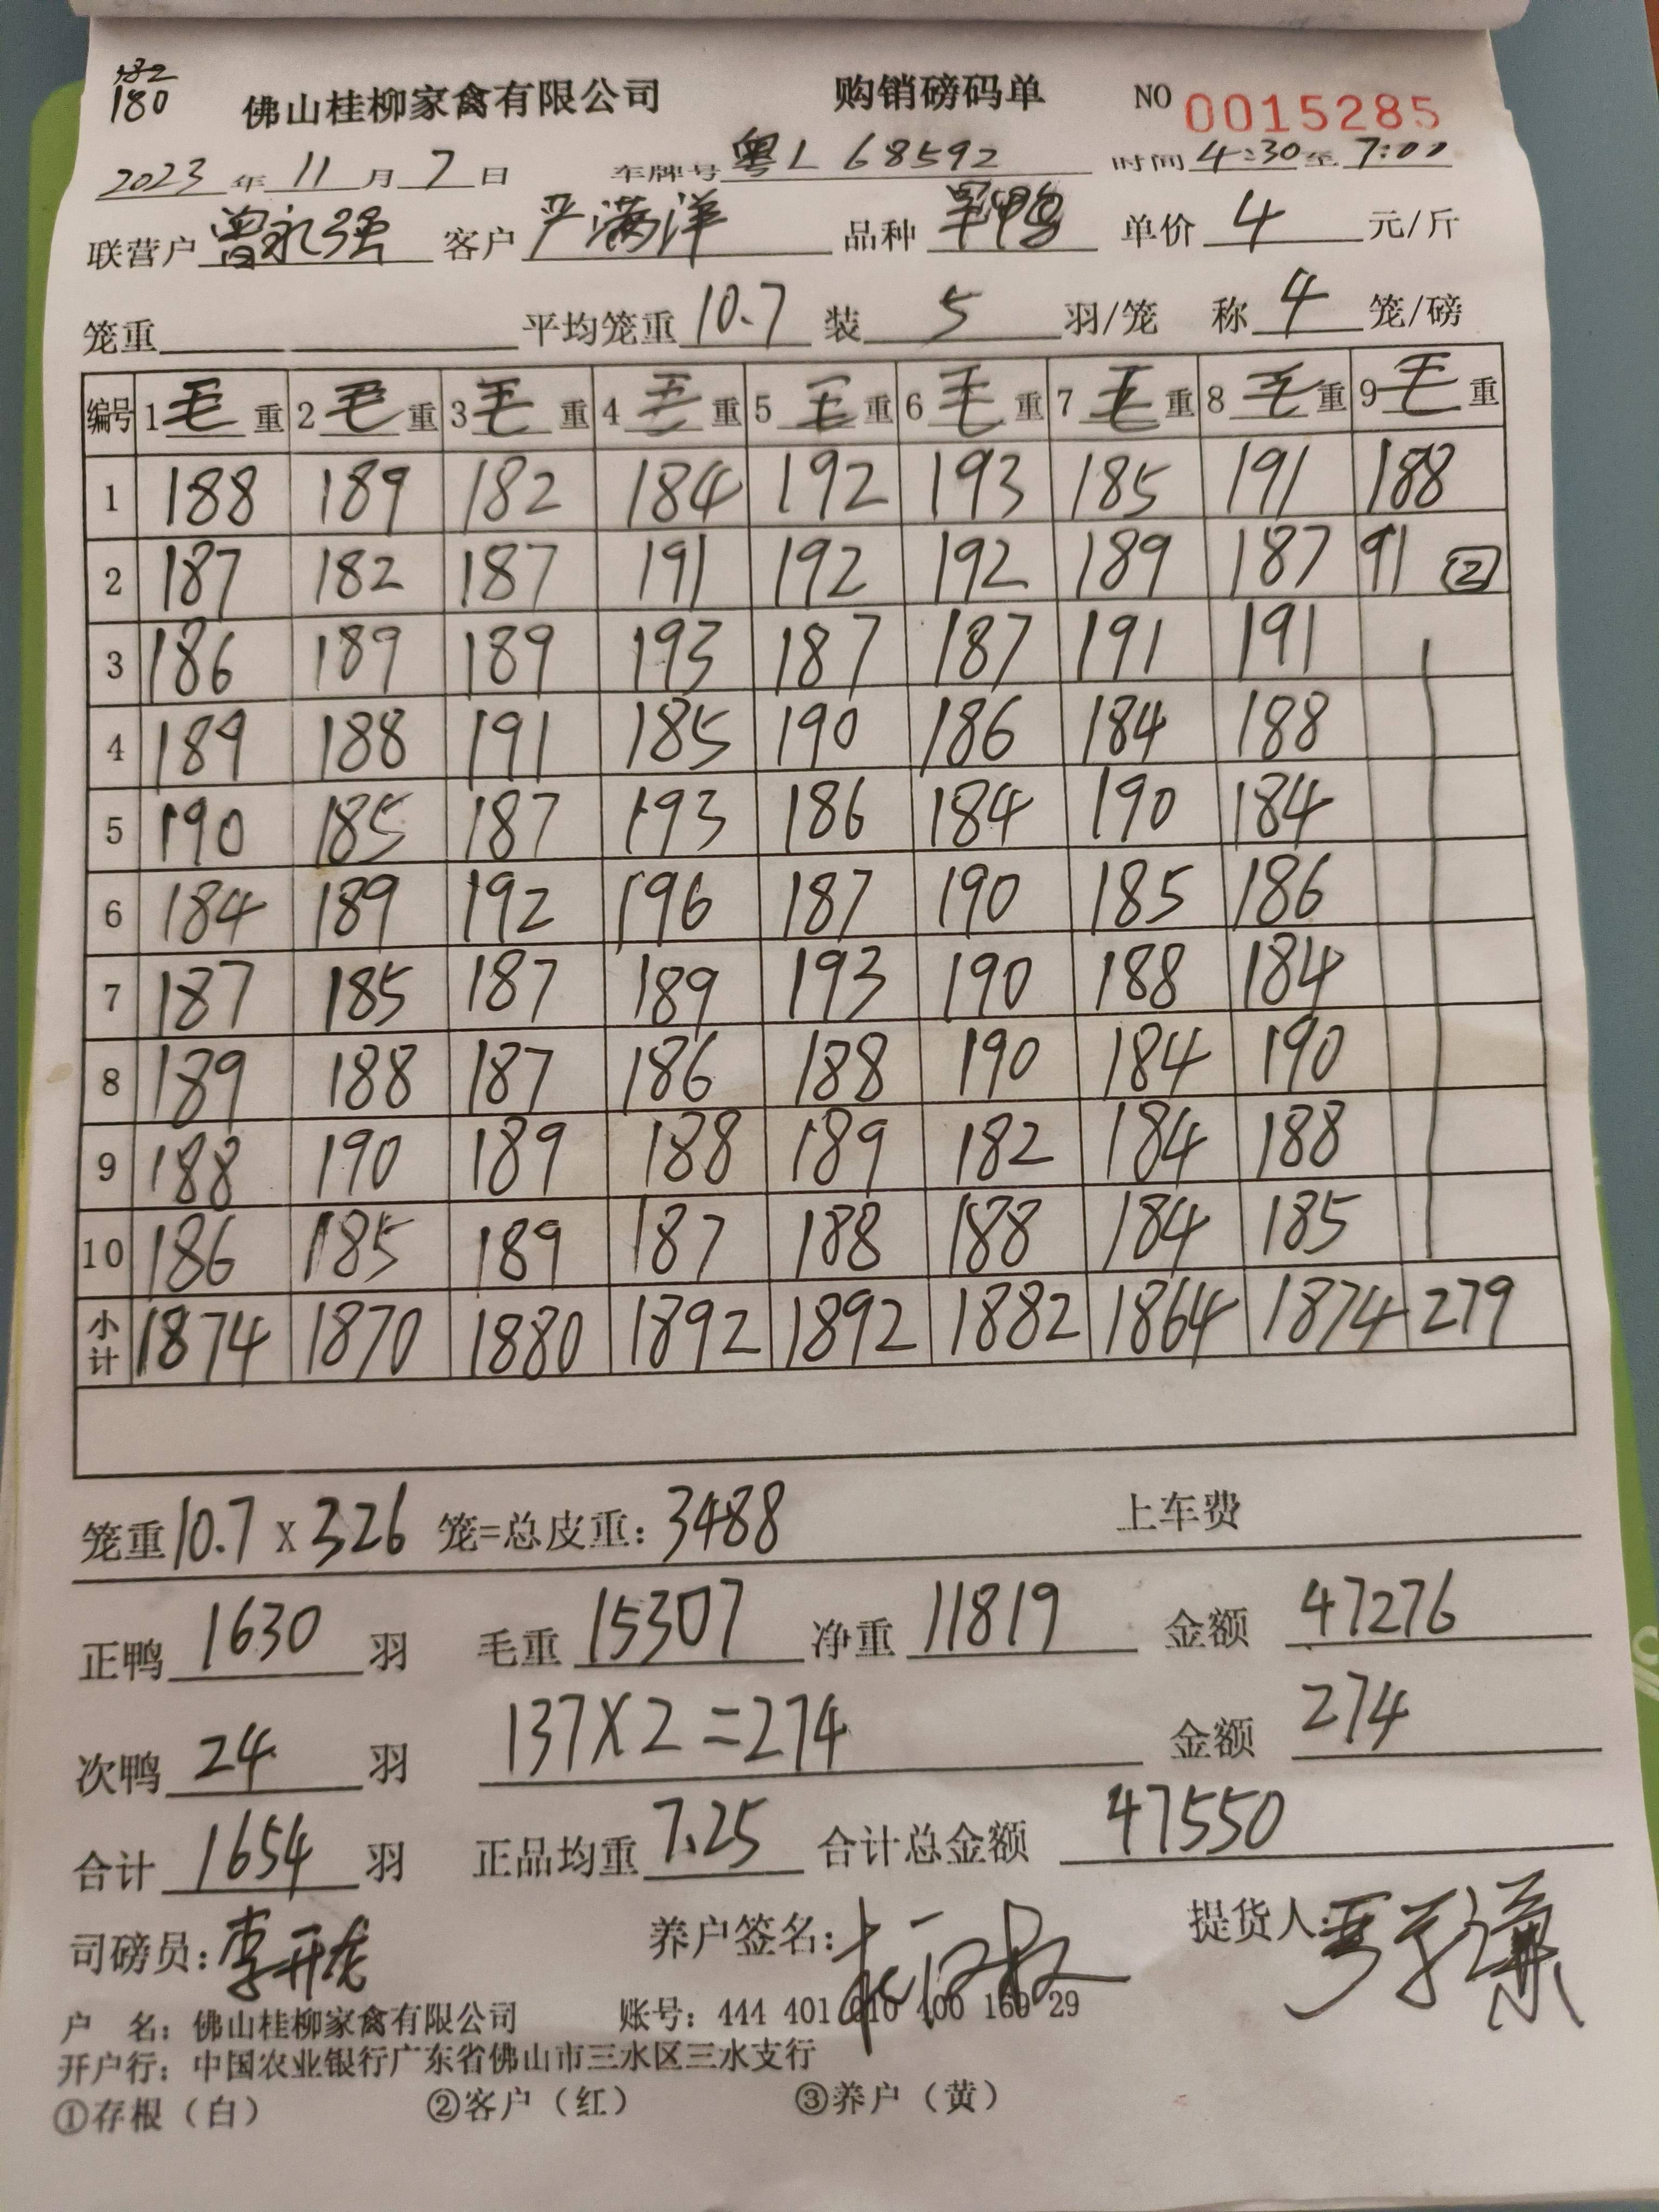 182
180
佛山桂柳家禽有限公司 购销磅码单 NO 0015285
2023年11月7日 车牌号粤L 68592 时间4:30至7:00
联营户曾永强 客户严满洋 品种 单价4元/斤
笼重 平均笼重10.7 装5羽/笼 称4笼/磅
编号 1毛重 2毛重 3毛重 4毛重 5毛重 6毛重 7毛重 8毛重 9毛重
1 188 189 182 184 192 193 185 191 188
2 187 182 187 191 192 192 189 187 91 2
3 186 189 189 193 187 187 191 191
4 189 188 191 185 190 186 184 188
5 190 185 187 193 186 184 190 184
6 184 189 192 196 187 190 185 186
7 187 185 187 189 193 190 188 184
8 189 188 187 186 188 190 184 190
9 188 190 189 188 189 182 184 188
10 186 185 189 187 188 188 184 185
小计 1874 1870 1880 1892 1892 1882 1864 1874 279
笼重10.7 x 326 笼=总皮重：3488 上车费
正鸭1630羽 毛重15307 净重11819 金额47276
次鸭24羽 137X2=274 金额274
合计1654羽 正品均重7.25 合计总金额47550
司磅员：李开龙 养户签名： 提货人：
户 名：佛山桂柳家禽有限公司 账号：444 401 010 400 169 29
开户行：中国农业银行广东省佛山市三水区三水支行
①存根（白） ②客户（红） ③养户（黄）